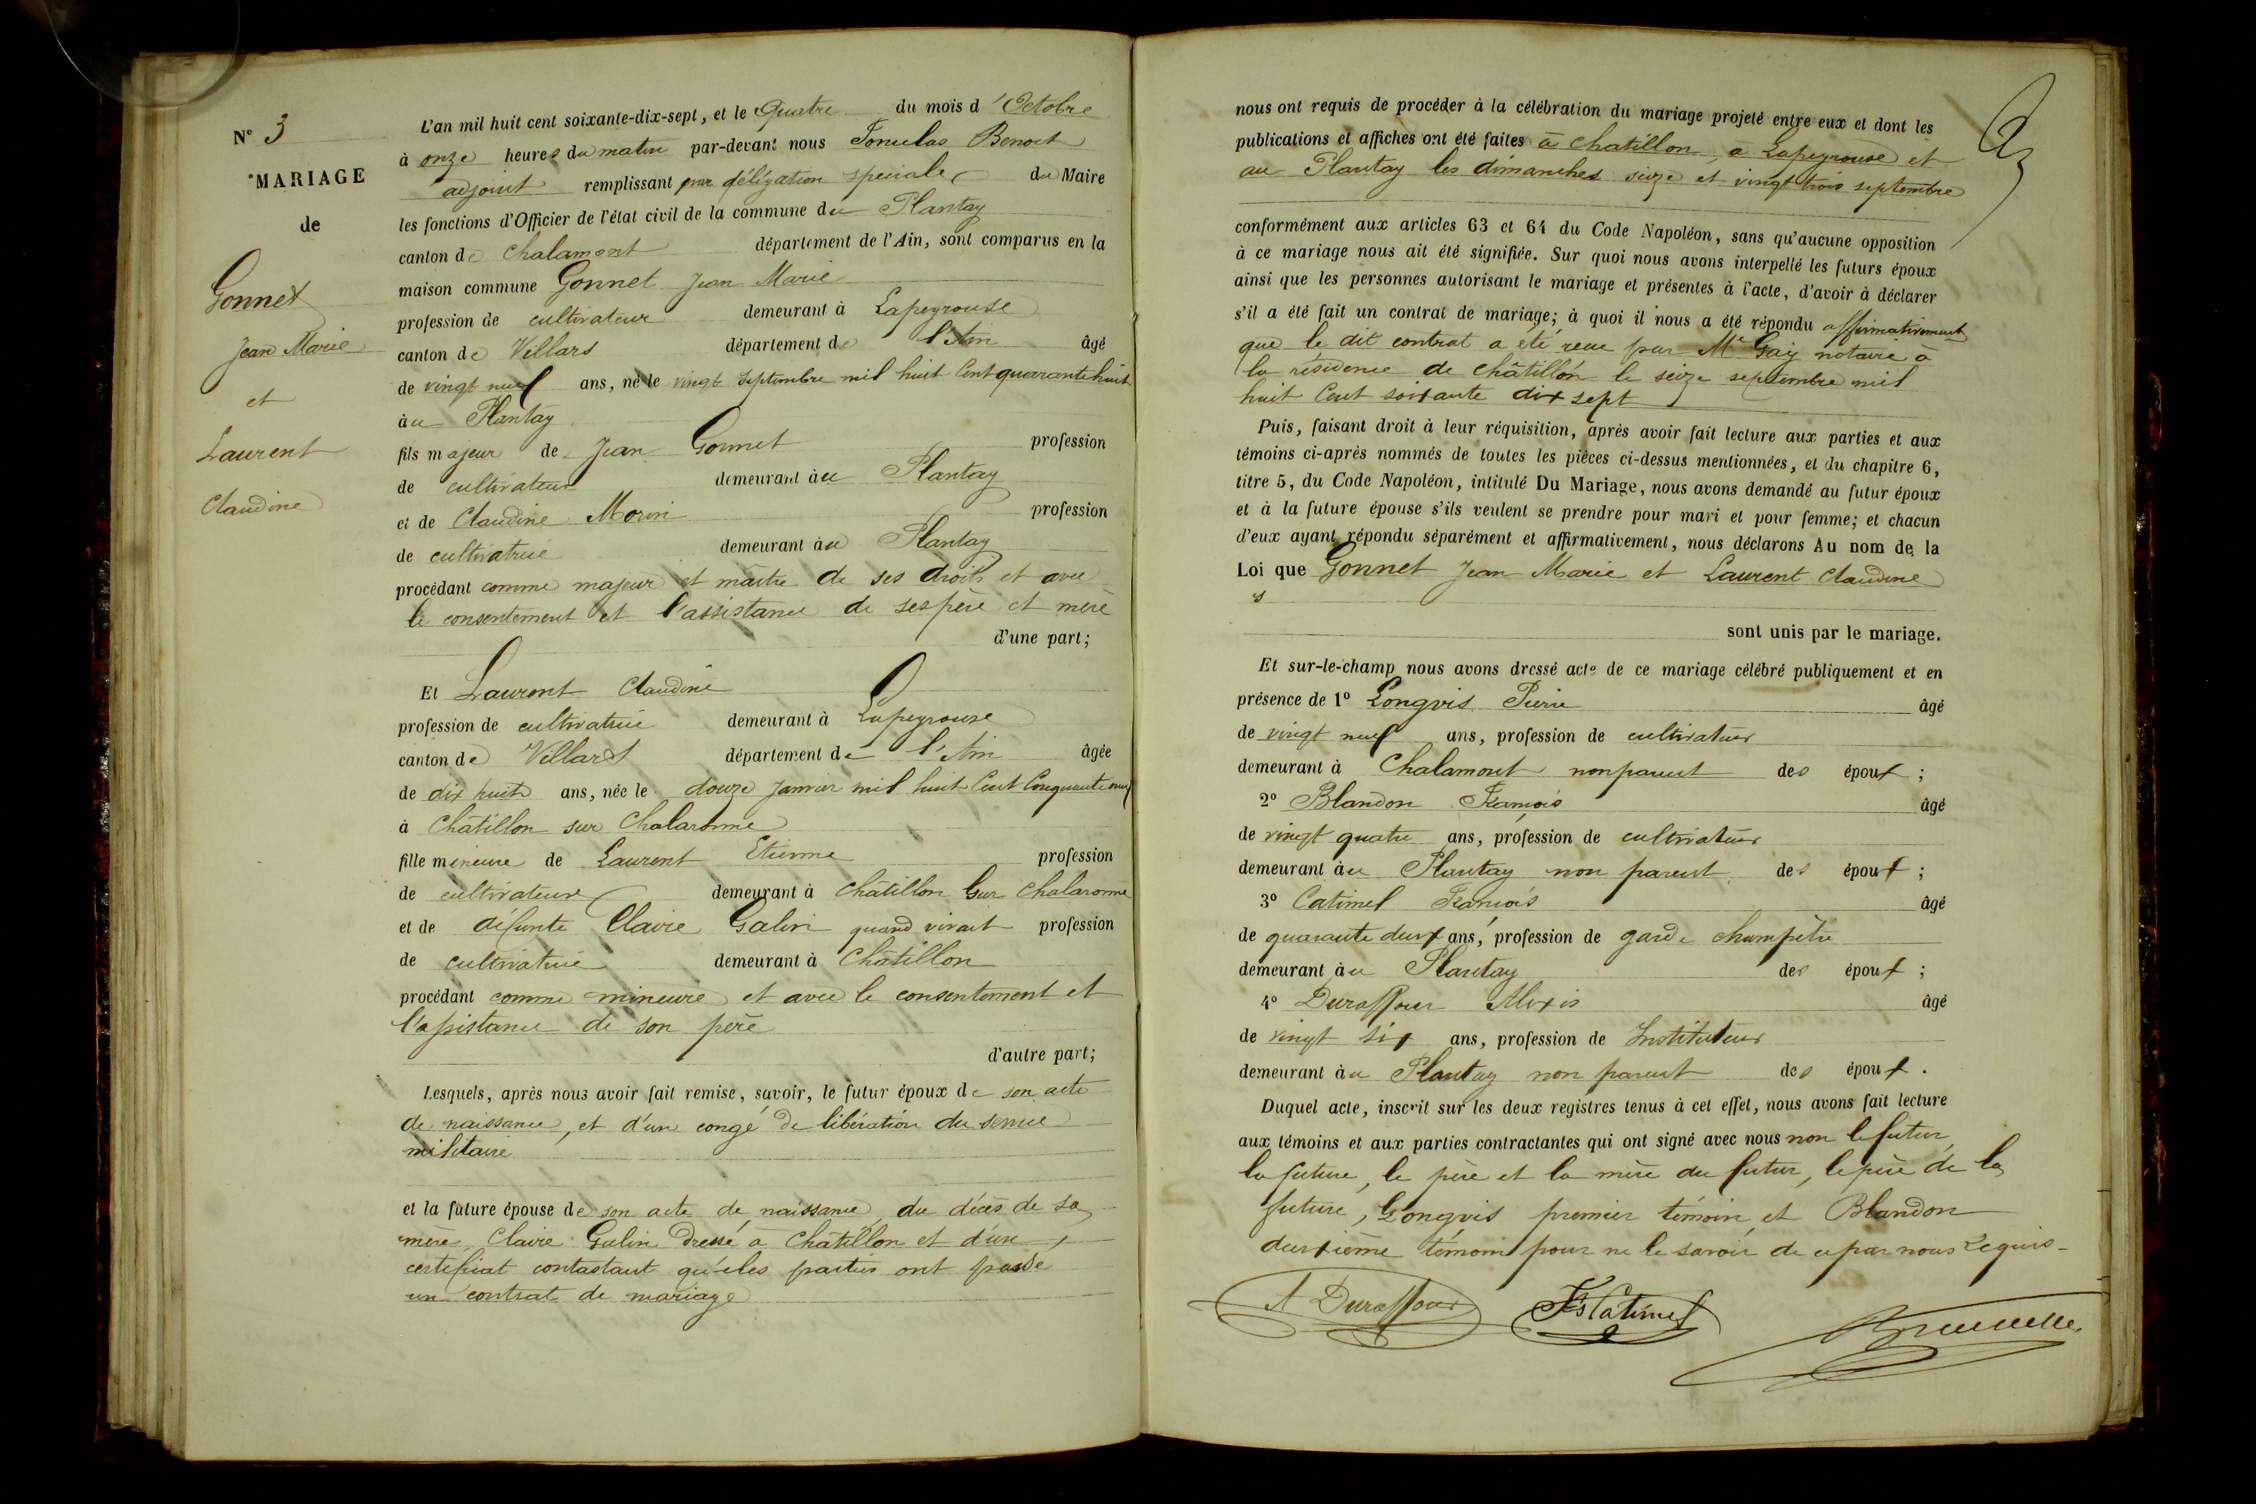 N° 3
MARIAGE
de
Gonnet
Jean Marie
et
Laurent
Claudine
L'an mil huit cent soixante-dix-sept, et le Quatre du mois d'Octobre
à onze heures du matin par-devant nous Benoit
adjoint remplissant par délégation spéciale du Maire
les fonctions d'Officier de l'état civil de la commune du Plantay
canton de Chalamont département de l'Ain, sont comparus en la
maison commune Gonnet Jean Marie
profession de cultivateur demeurant à Lapeyrouse
canton de Villars département de l'Ain âgé
de vingt neuf ans, né le vingt septembre mil huit Cent quarante huit
àu Plantay
fils majeur de Jean Gonnet profession
de cultivateur demeurant àu Plantay
et de Claudine Morin profession
de cultivatrice demeurant àu Plantay
procédant comme majeur et maître de ses droits et avec
le consentement et l'assistance de ses père et mère
d'une part;
Et Laurent Claudine
profession de cultivatrice demeurant à Lapeyrouse
canton de Villars département de l'Ain âgée
de dix huit ans, née le douze Janvier mil huit Cent Cinquante neuf
à Châtillon sur Chalaronne
fille mineure de Laurent Etienne profession
de cultivateur demeurant à Châtillon sur Chalaronne
et de défunte Claire Galin quand vivait profession
de cultivatrice demeurant à Châtillon
procédant comme mineure et avec le consentement et
l'assistance de son père
d'autre part;
Lesquels, après nous avoir fait remise, savoir, le futur époux de son acte
de naissance, et d'un congé de libération du service
militaire
et la future épouse de son acte de naissance, du décès de sa
mère Claire Galin dressé à Châtillon et d'un
certificat contastant qu'eles parties ont passé
un contrat de mariage
nous ont requis de procéder à la célébration du mariage projeté entre eux et dont les
publications et affiches ont été faites à Chatillon, à Lapeyrouse et
au Plantay les dimanches seize et vingt trois septembre
conformément aux articles 63 et 64 du Code Napoléon, sans qu'aucune opposition
à ce mariage nous ait été signifiée. Sur quoi nous avons interpellé les futurs époux
ainsi que les personnes autorisant le mariage et présentes à l'acte, d'avoir à déclarer
s'il a été fait un contrat de mariage; à quoi il nous a été répondu affirmativement
que le dit contrat a été recu par Me Gay notaire à
la résidence de Châtillon le seize septembre mil
huit Cent soixante dix sept
Puis, faisant droit à leur réquisition, après avoir fait lecture aux parties et aux
témoins ci-après nommés de toutes les pièces ci-dessus mentionnées, et du chapitre 6,
titre 5, du Code Napoléon, intitulé Du Mariage, nous avons demandé au futur époux
et à la future épouse s'ils veulent se prendre pour mari et pour femme; et chacun
d'eux ayant répondu séparément et affirmativement, nous déclarons Au nom de la
Loi que Gonnet Jean Marie et Laurent Claudine
sont unis par le mariage.
Et sur-le-champ nous avons dressé acte de ce mariage célébré publiquement et en
présence de 1° Longvis Pierre âgé
de vingt neuf ans, profession de cultivateur
demeurant à Chalamont non parent des époux;
2° Blandon François âgé
de vingt quatre ans, profession de cultivateur
demeurant àu Plantay non parent des époux;
3° Catimel François âgé
de quarante deux ans, profession de garde champêtre
demeurant àu Plantay des époux;
4° Duraffour Alexis âgé
de vingt six ans, profession de Instituteur
demeurant àu Plantay non parent des époux.
Duquel acte, inscrit sur les deux registres tenus à cet effet, nous avons fait lecture
aux témoins et aux parties contractantes qui ont signé avec nous non le futur
la future, le père et la mère du futur, le père de la
future, Longvis premier témoin et Blandon
deuxième témoin pour ne le savoir de ce par nous requis
A Duraffour Fs Catimel